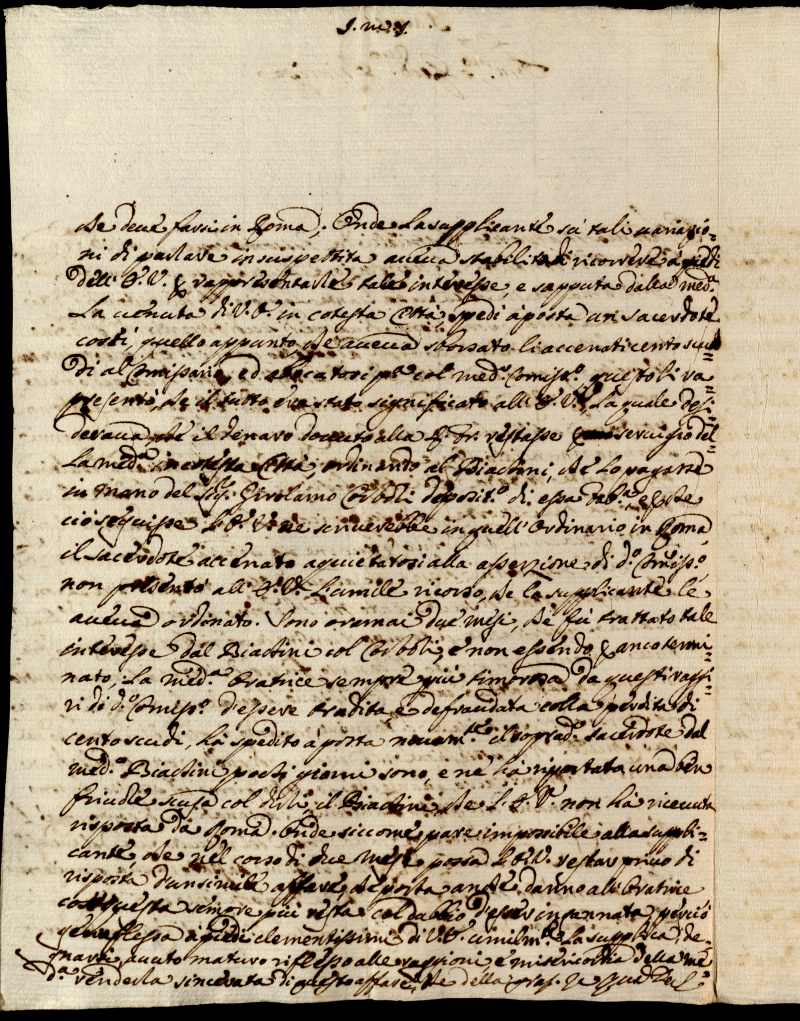 che deve farsi in Roma; Onde La supplicante su tali variazio=
ni di parlare insuspettita aveva stabilito di ricorrere a piedi
dell' E. V. p rappresentarle tale interesse, e saputa dalla med.a
La venuta di V. E. in cotesta Città spedì aposta un sacerdote
costì, quello appunto, che aveva sborsato li accenati cento scu=
di al Comissario, ed aboccatosi p.a col med.o Comiss.o questo li ra
presentò, che il tutto era stato significato all' E. V., La quale desi=
derava, che il denaro dovuto alla restasse servigio del=
La med.a in cotesta Città, ordinando al Biachini, che Lo pagasse
in mano del Sig.r Girolamo Corboli deposit.o di essa e che
ciò seguisse L' E. V. ne scriverebbe in quell' Ordinario in Roma
il sacerdote accenato aquietatosi alla asserzione di d.o Comiss.o
non presentò all' E. V. L'umile ricorso, che la supplicante le
aveva ordinato. Sono oramai due mesi, che fù trattato tale
interesse dal Biachini col Corboli, e non essendo p anco termi=
nato, La med.a Oratrice sempre più timorosa da questi raggi=
ri di d.o Comiss.o d'essere tradita, e defraudata colla perdita di
cento scudi, hà spedito aposta il soprad.o sacerdote dal
med.o Biachini pochi giorni sono, e ne hà riportata una ben
frivole scusa col dirli, il Biachini, che L' E. V. non hà ricevuta
risposta da Roma. Onde siccome pare impossibile alla suppli=
cante, che nel corso di due mesi possa L' E. V. restar privo di
risposta d'un simile affare, che porta anche danno all' Oratrice
così questa sempre più resta col dubbio d'esser ingannata, perciò
genuflessa a piedi clementissimi di V. E. umilm.te La supplica, de=
gnarsi, avuto maturo riflesso alle raggioni e misericordia della me=
d.a renderla sincerata di questo affare, che della graz.